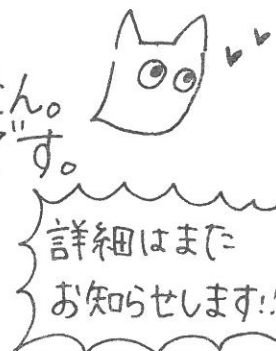 ん。
です。
詳細はまた
お知らせします!!